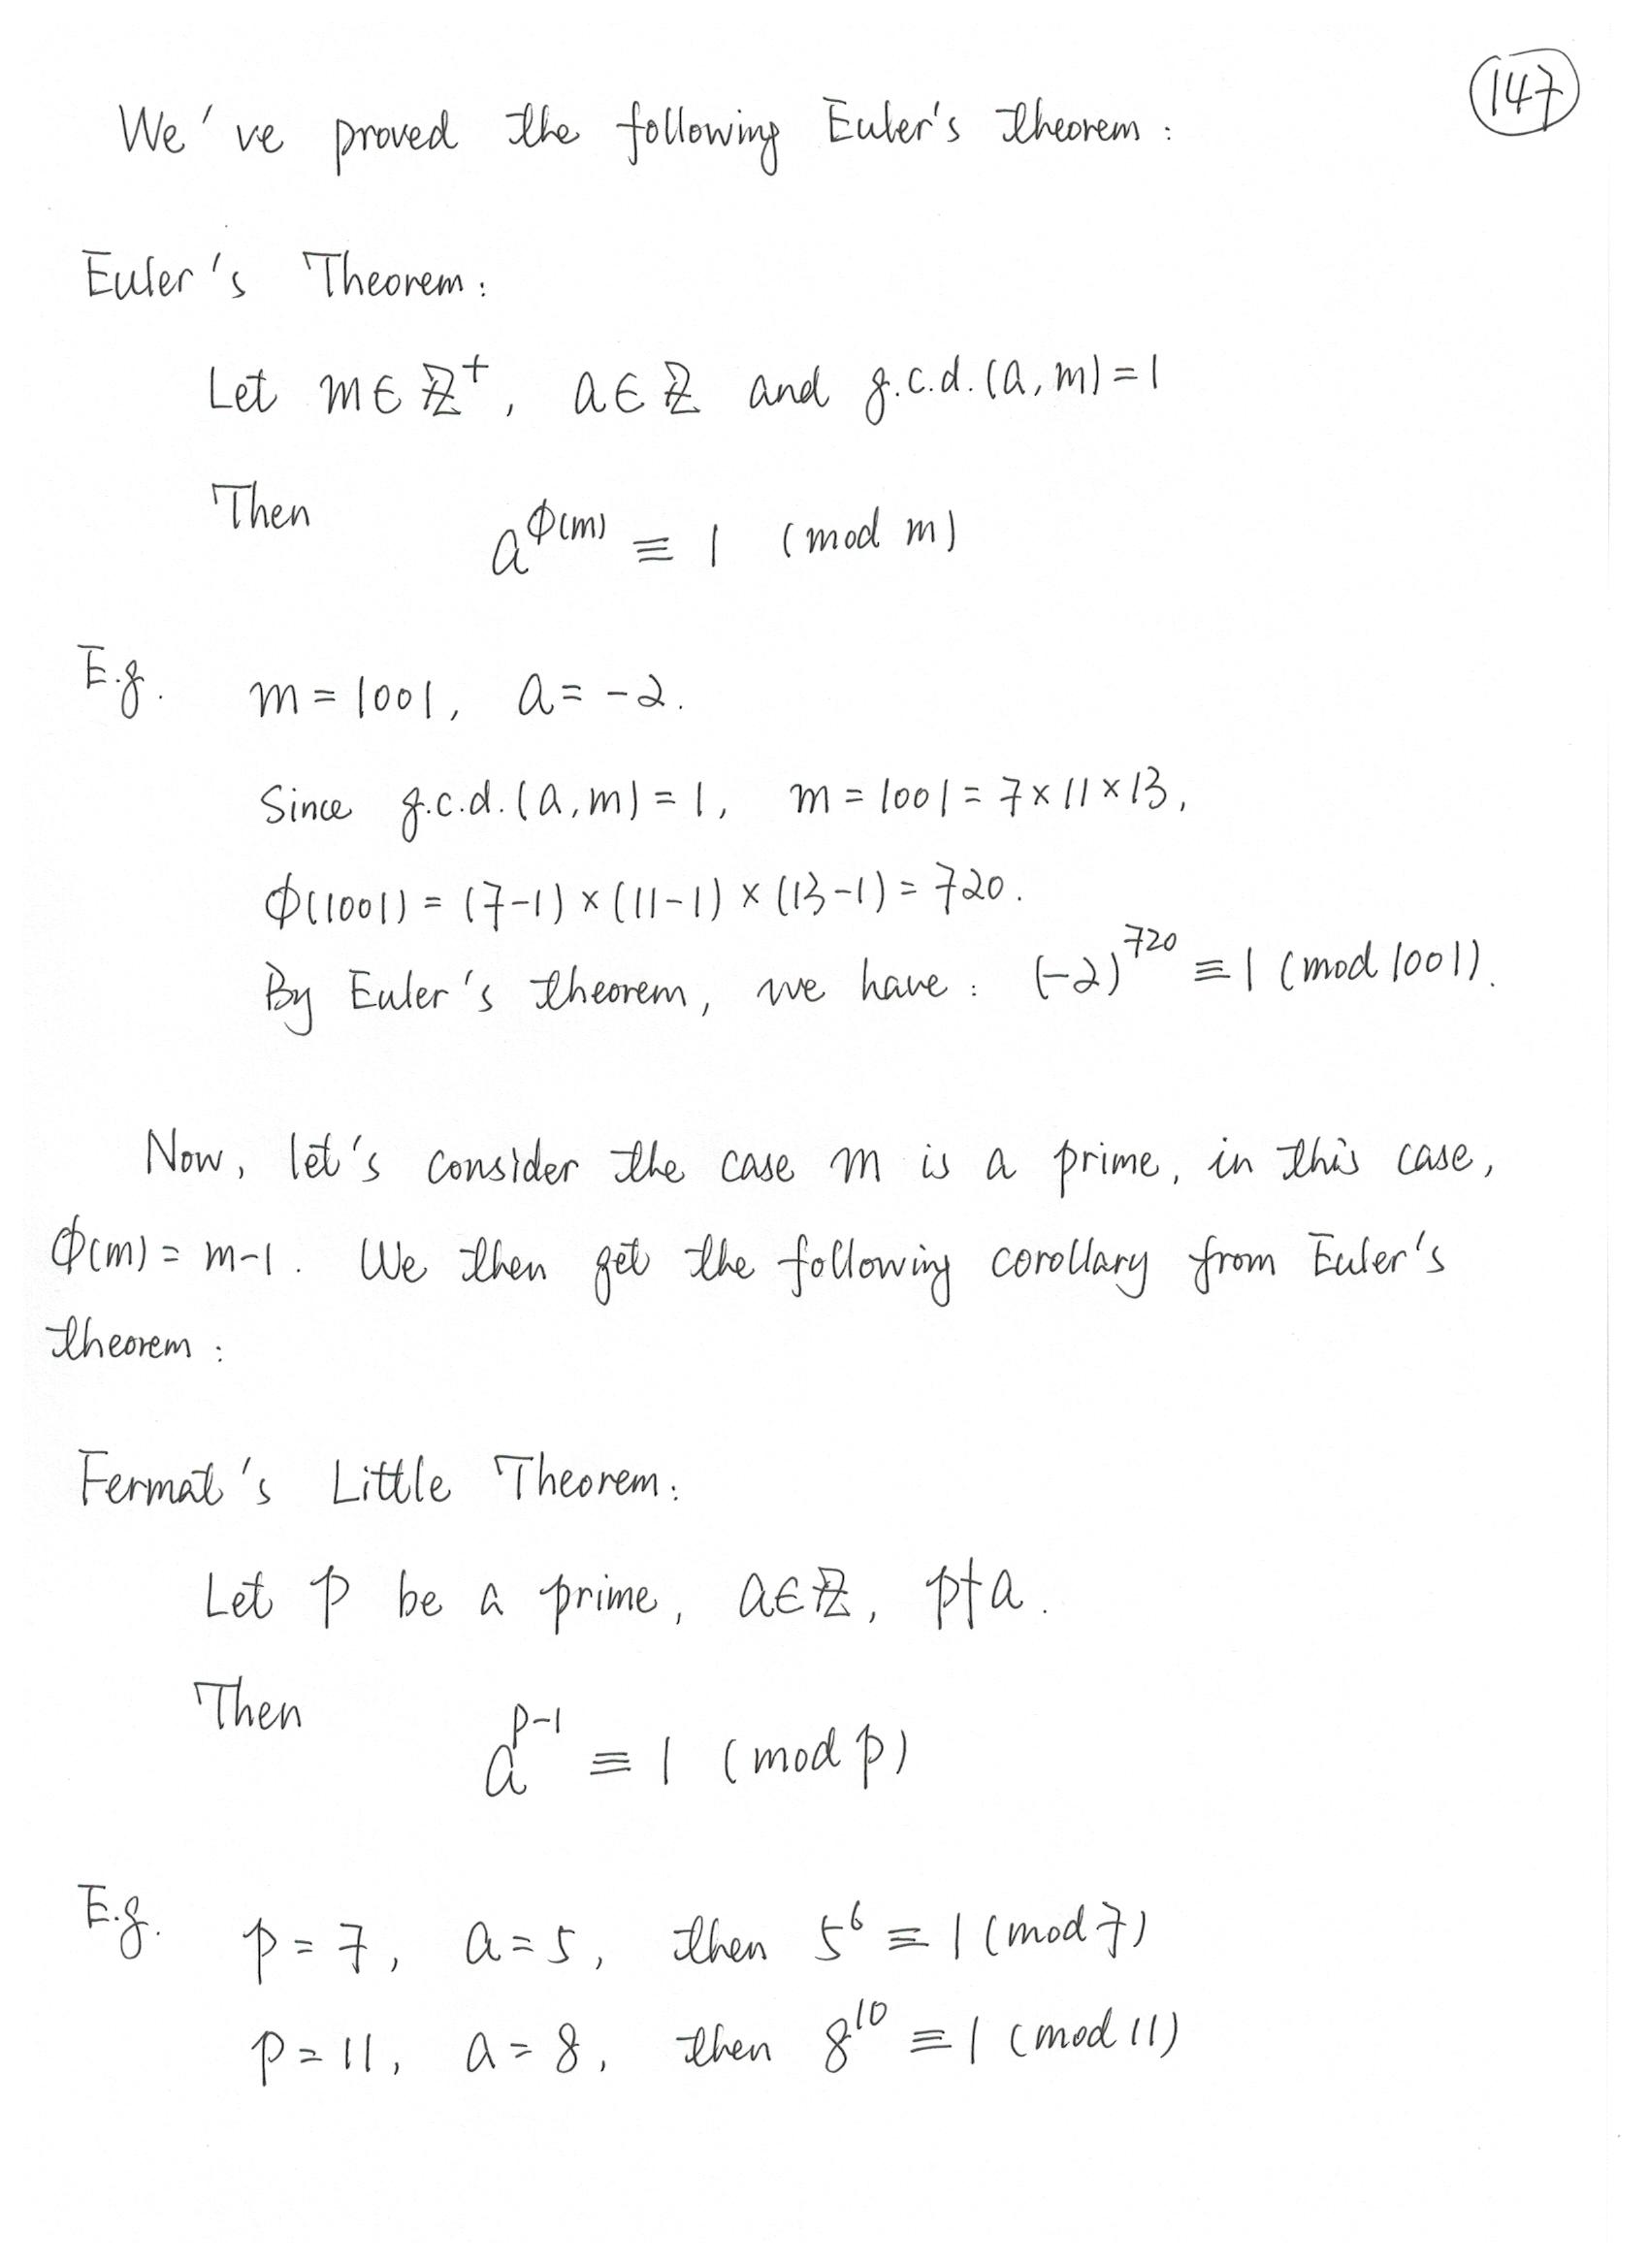 147
We've proved the following Euler's theorem:
Euler's Theorem:
Let m ∈ ℤ⁺, a ∈ ℤ and g.c.d.(a, m) = 1
Then a^φ(m) ≡ 1 (mod m)
E.g. m = 1001, a = -2.
Since g.c.d.(a, m) = 1, m = 1001 = 7 × 11 × 13,
φ(1001) = (7-1) × (11-1) × (13-1) = 720.
By Euler's theorem, we have: (-2)^720 ≡ 1 (mod 1001).
Now, let's consider the case m is a prime, in this case,
φ(m) = m-1. We then get the following corollary from Euler's
theorem:
Fermat's Little Theorem:
Let p be a prime, a ∈ ℤ, p ∤ a.
Then a^(p-1) ≡ 1 (mod p)
E.g. p = 7, a = 5, then 5^6 ≡ 1 (mod 7)
p = 11, a = 8, then 8^10 ≡ 1 (mod 11)